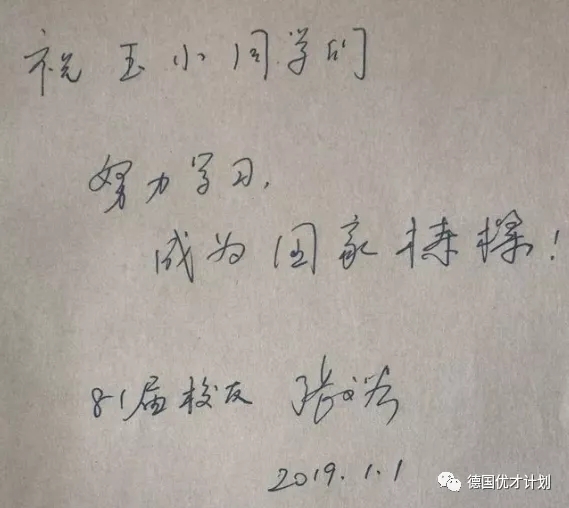 祝玉小同学们
努力学习,
成为国家栋梁!
81届校友 张文宏
2019.1.1
德国优才计划